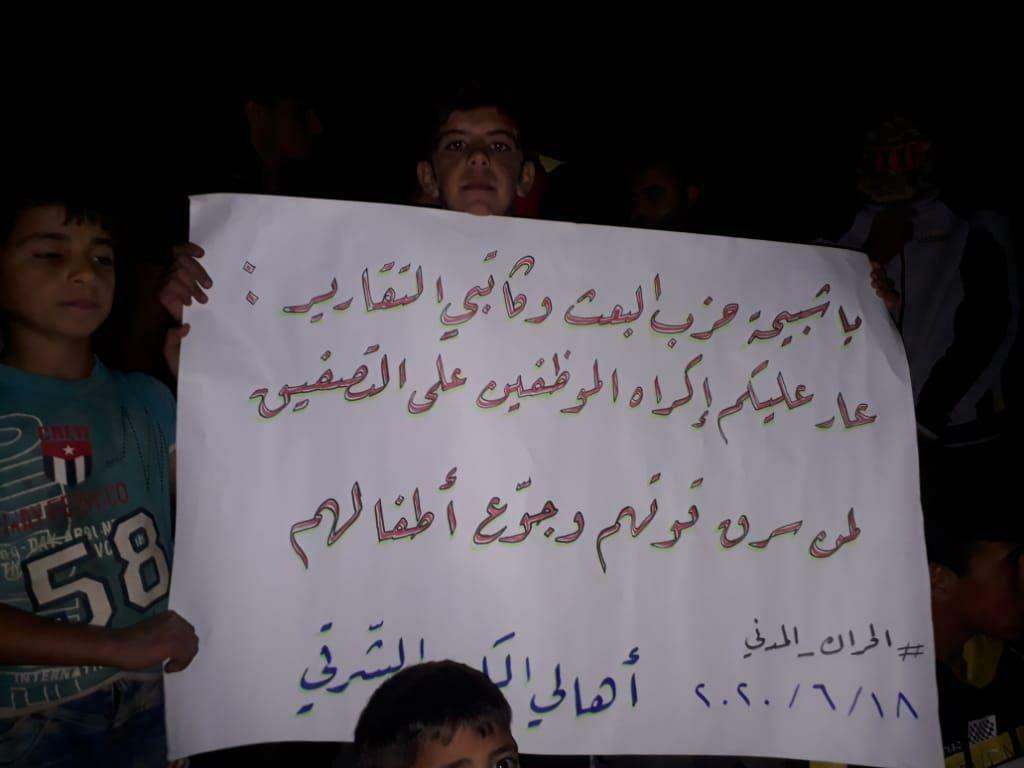 يا شبيحة حزب البعث وكاتبي التقارير :
عار عليكم إكراه الموظفين على التصفيق
لمن سرق قوتهم وجوّع أطفالهم
#الحراك_المدني
أهالي الشرقي
٢٠٢٠/٦/١٨
CREW
58
INTERNATIONAL